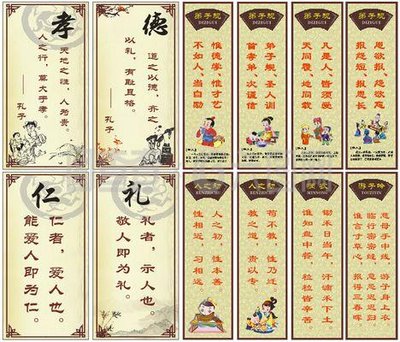 孝
天地之性,人为贵。
人之行,莫大于孝。
——孔子
德
道之以德,齐之
以礼,有耻且格。
——孔子
弟子规
DIZIGUI
惟德学,惟才艺
不如人,当自励
弟子规
DIZIGUI
弟子规,圣人训
首孝弟,次谨信
弟子规
DIZIGUI
凡是人,皆须爱
天同覆,地同载
弟子规
DIZIGUI
恩欲报,怨欲忘
报怨短,报恩长
仁
仁者,爱人也。
能爱人即为仁。
礼
礼者,示人也。
敬人即为礼。
人之初
RENZHICHU
人之初,性本善
性相近,习相远
人之初
RENZHICHU
苟不教,性乃迁
教之道,贵以专
悯农
MINNONG
锄禾日当午,汗滴禾下土
谁知盘中餐,粒粒皆辛苦
游子吟
YOUZIYIN
慈母手中线,游子身上衣
临行密密缝,意恐迟迟归
谁言寸草心,报得三春晖